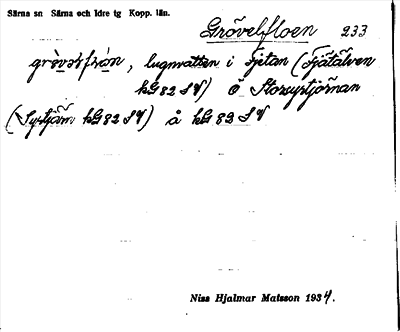 Särna sn Särna och Idre tg Kopp. län.
Grövelfloen 233
lugnvatten i Fjetan (Fjätälven
kG 82 SV) Ö Storsystjörnan
(Systjärn kG 82 SV) å kG 82 SV
Niss Hjalmar Matsson 1934.